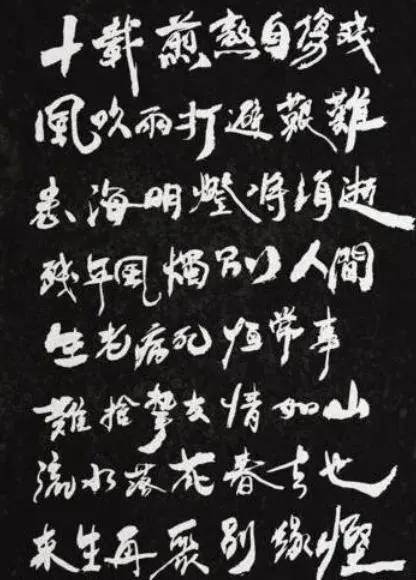 十載煎熬自傷残
風吹雨打避艱難
患海明燈將消逝
残年風燭別人間
生老病死恒常事
難捨摯友情如山
流水落花春去也
來生再聚別緣慳